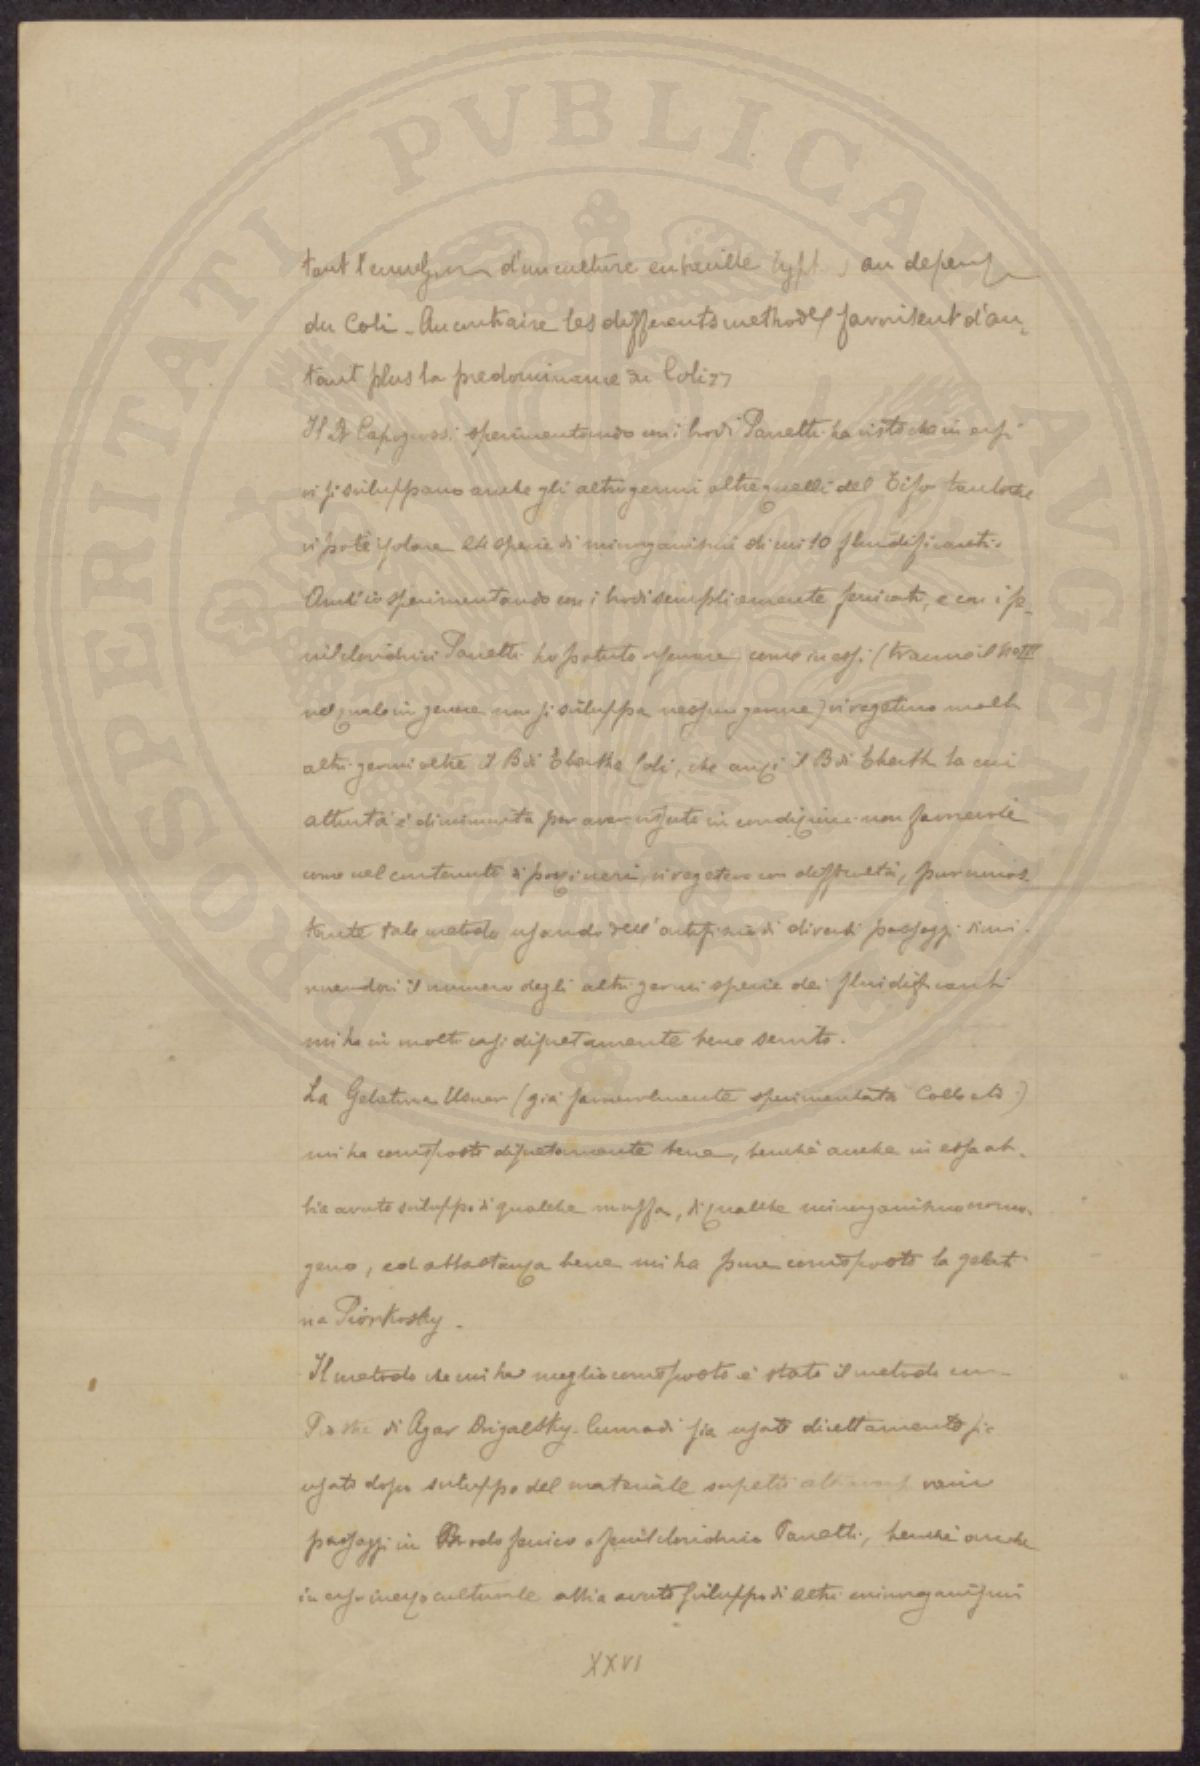 PROSPERITATI PVBLICAE AVGENDAE
tant d'une culture Typh. au
du Coli - Au contraire les differents methodes favorisent d'au-
tant plus la predominance du Coli»
Il Dr Capogrossi sperimentando con i brodi Panetti ha visto che in essi
vi si sviluppano anche gli altri germi oltre quelli del Tifo tantoche
vi potè isolare 24 specie di microrganismi di cui 10 fluidificanti.
sperimentando con i brodi semplicemente fenicati, e con i fe-
nilcloridrici Panetti ho potuto come in essi (tranne il No III
nel quale in genere non si sviluppa nessun germe) vi vegetino molti
altri germi oltre il B di Eberth e Coli, che anzi il B di Eberth la cui
attività è diminuita per aver vissuto in condizioni non favorevoli
come nel contenuto di pozzi neri, vi vegetava con difficoltà, pur nonos-
tante tale metodo usando dell' artifizio di diversi passaggi dimi-
nuendosi il numero degli altri germi specie dei fluidificanti
mi ha in molti casi discretamente bene servito.
La Gelatina Elsner (già favorevolmente sperimentata )
mi ha corrisposto discretamente bene, benchè anche in essa ab-
bia avuto sviluppo di qualche muffa, di qualche microrganismo cromo-
geno, ed abbastanza bene mi ha pure corrisposto la gelati
na Piorkosky.
Il metodo che mi ha meglio corrisposto è stato il metodo con
Piastre di Agar Drigalsky-Conradi sia usato direttamente sia
usato dopo sviluppo del materiale sospetto varii
passaggi in Brodo fenico o fenilcloridrico Panetti, benchè anche
in esso mezzo culturale abbia avuto sviluppo di altri microrganismi
XXVI